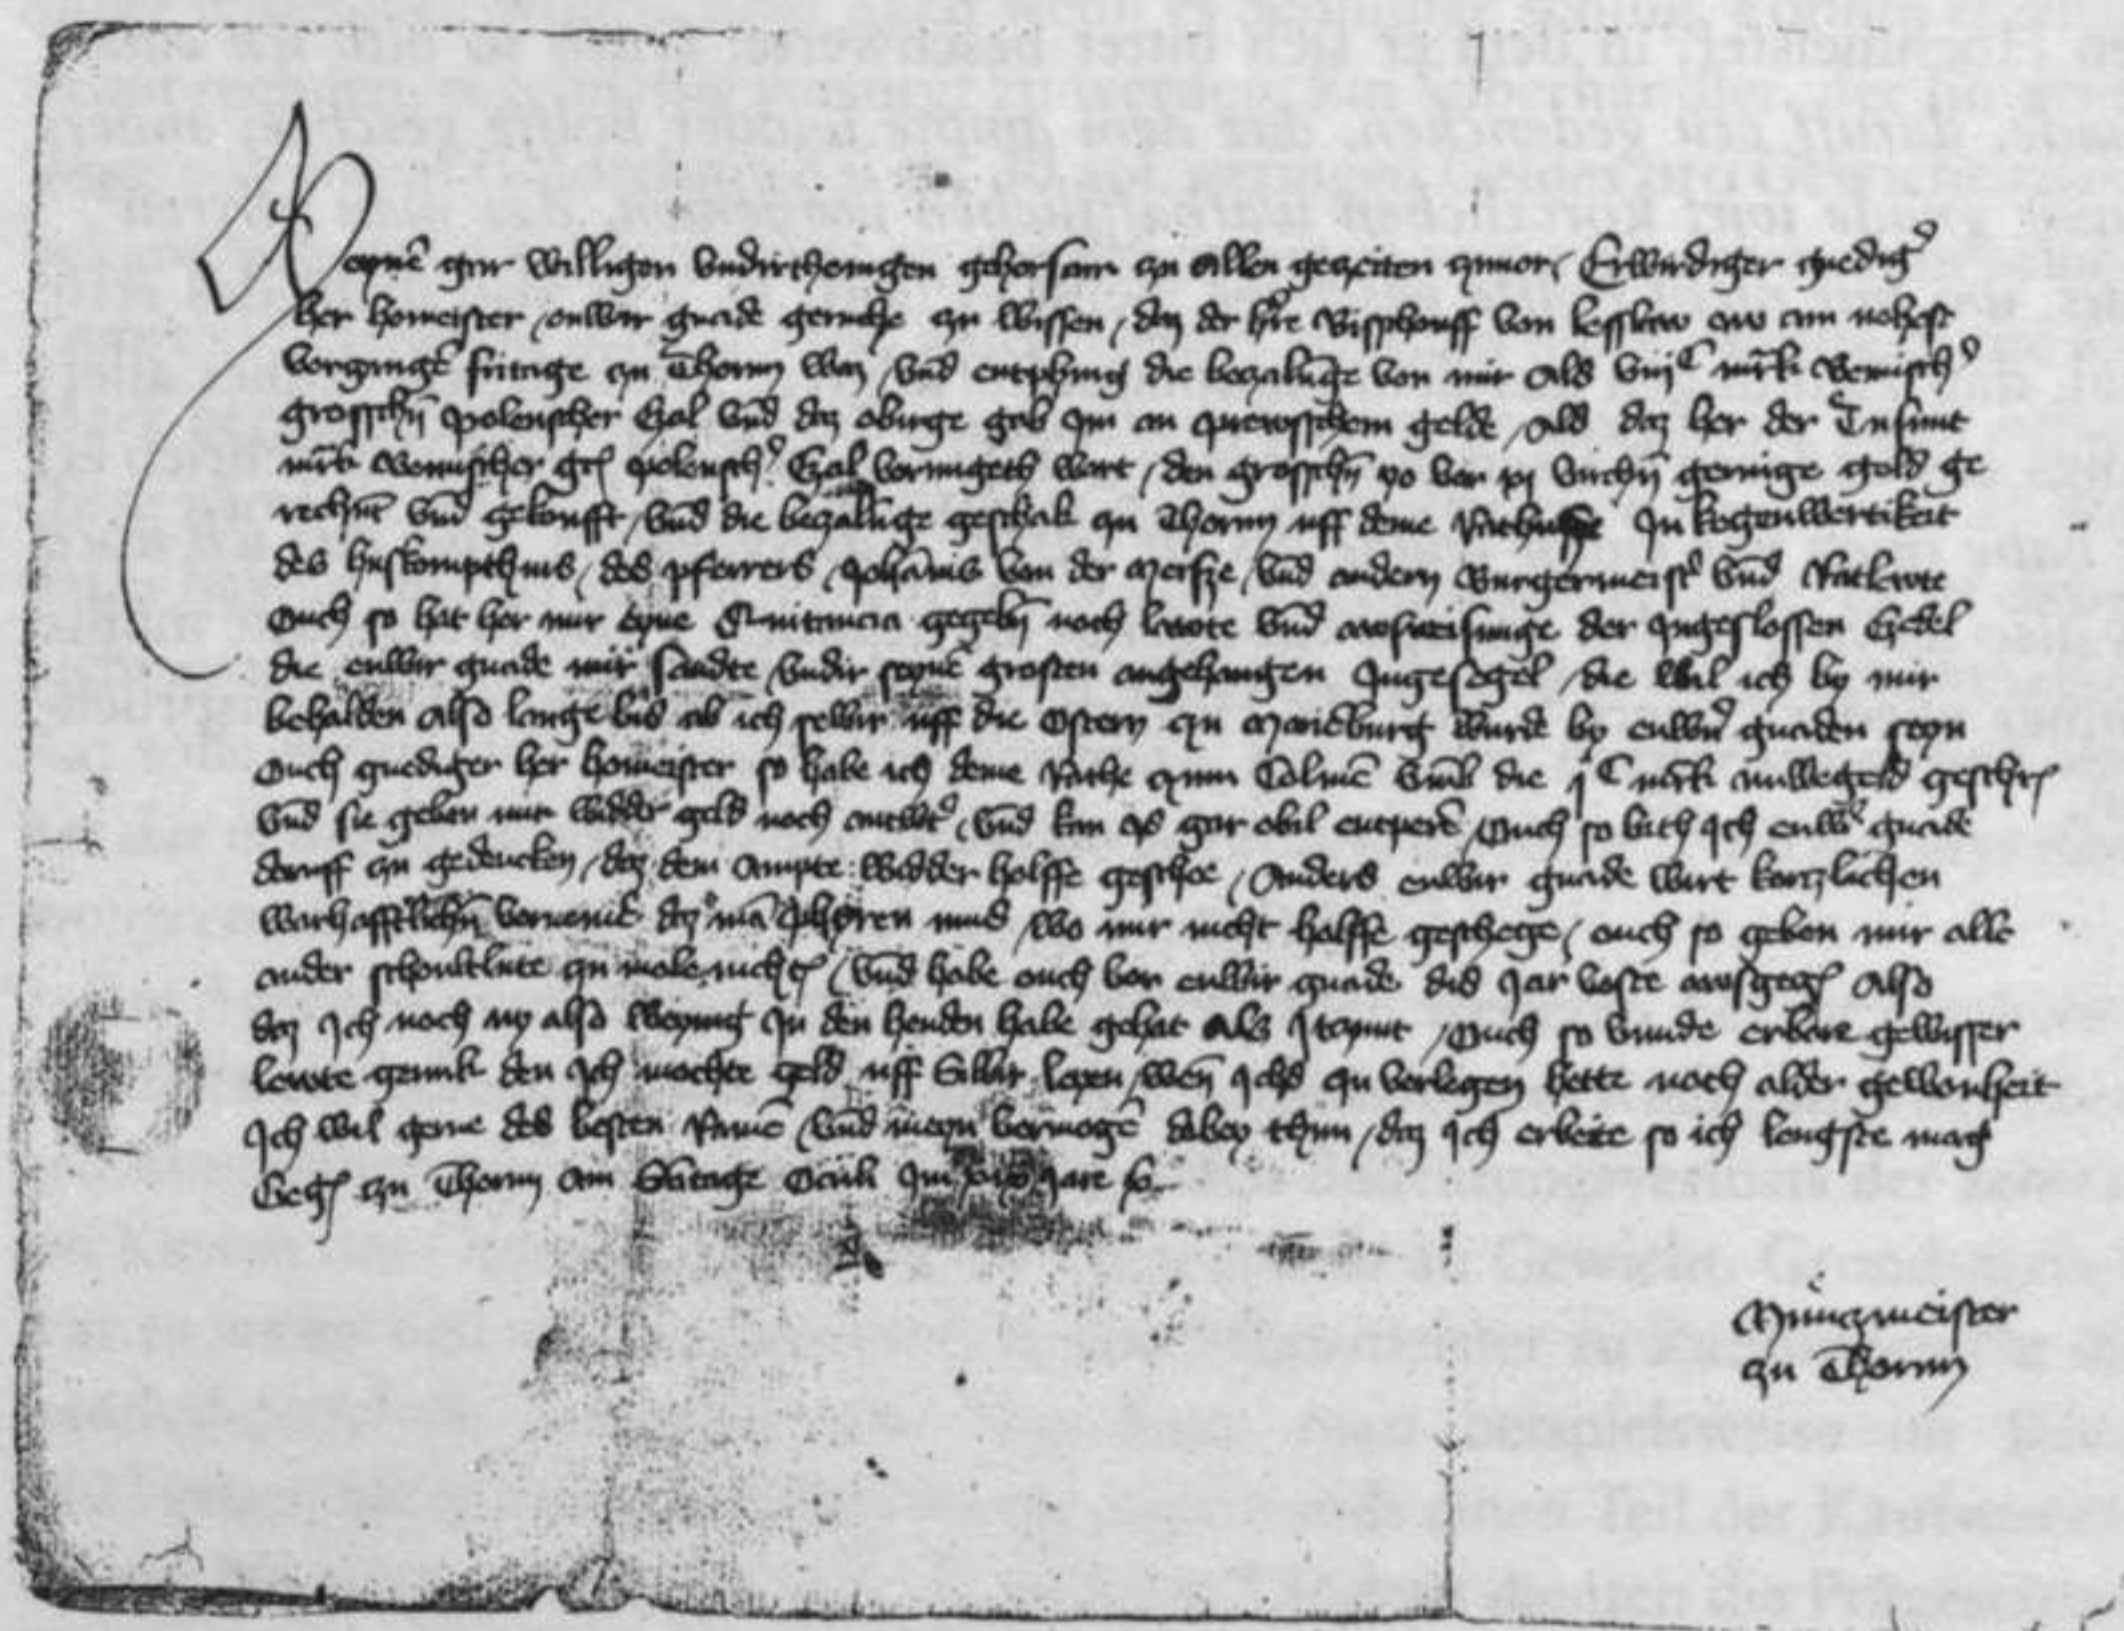 Meynē gar willigen undirthenigen gehorsam zu allen geczeiten zuvor Erwirdiger gnedig
her homeister, euwir gnade geruche zu wissen, daz der h're Bisschouff von lesslaw am nehest
vorgangē fritage zu Thorun waz, und entphing die beczalunge von mir als viijC m͞rk Bemisch
grosschn polenscher Czal und daz obirge gab Im an prewsschem gelde, als daz her der Tusunt
m͞rk Bemischer gr polensch Czal vornuget wart, den grosschn vor xj virchn geringe geld ge
rechnt und gekoufft, und die beczalunge geschah zu Thorun uff deme Rathusze In kegenwertikeit
des huskompthurs, des pfarrers, Johānis von der Mersze, und andern Burgermeist' und Ratlwte
Ouch so hat her mir eyne Quitancia gegebn noch lwte und awsweisunge der Ingeslossen Czedel
die euwir gnade mir sandte, undir seynē grosten angehangen Ingesegel, die wil ich by mir
behalden also lange bis ab ich selbir uff die Ostern zu Marienburg wurde by euwir gnaden seyn
Ouch gnediger her homeister so habe ich deme Rathe zum Colmē umb die jC m͞rk nuwegeld geschr
und sie geben mir widder geld noch antwt', und kan es gar obil entperē, Ouch so bith Ich euwir gnade
doruff zu gedencken, daz dem ampte widder holffe geschee, Anders euwir gnade wirt kortzlichen
warhafftlichn vornemē daz mā mus wo mir nicht holffe geschege, ouch so geben mir alle
ander schouldlute zu mole nicht, und habe ouch vor euwir gnade dis Jar vaste awsgeg also
daz Ich noch ny also weynig In den henden habe gehat als Itzunt, Ouch so vunde erbare gewisser
lewte genuk den Ich mochte geld uff Silbir leyen, wen Ichs zu vorlegen hette noch alder gewonheit
Ich wil gerne des besten Ramē und meyn vermogē dobey thun, daz Ich erbeite so ich lengste mag
Geg zu Thorun am Sūtage Oculi Im Jare
Munczmeister
zu Thorun